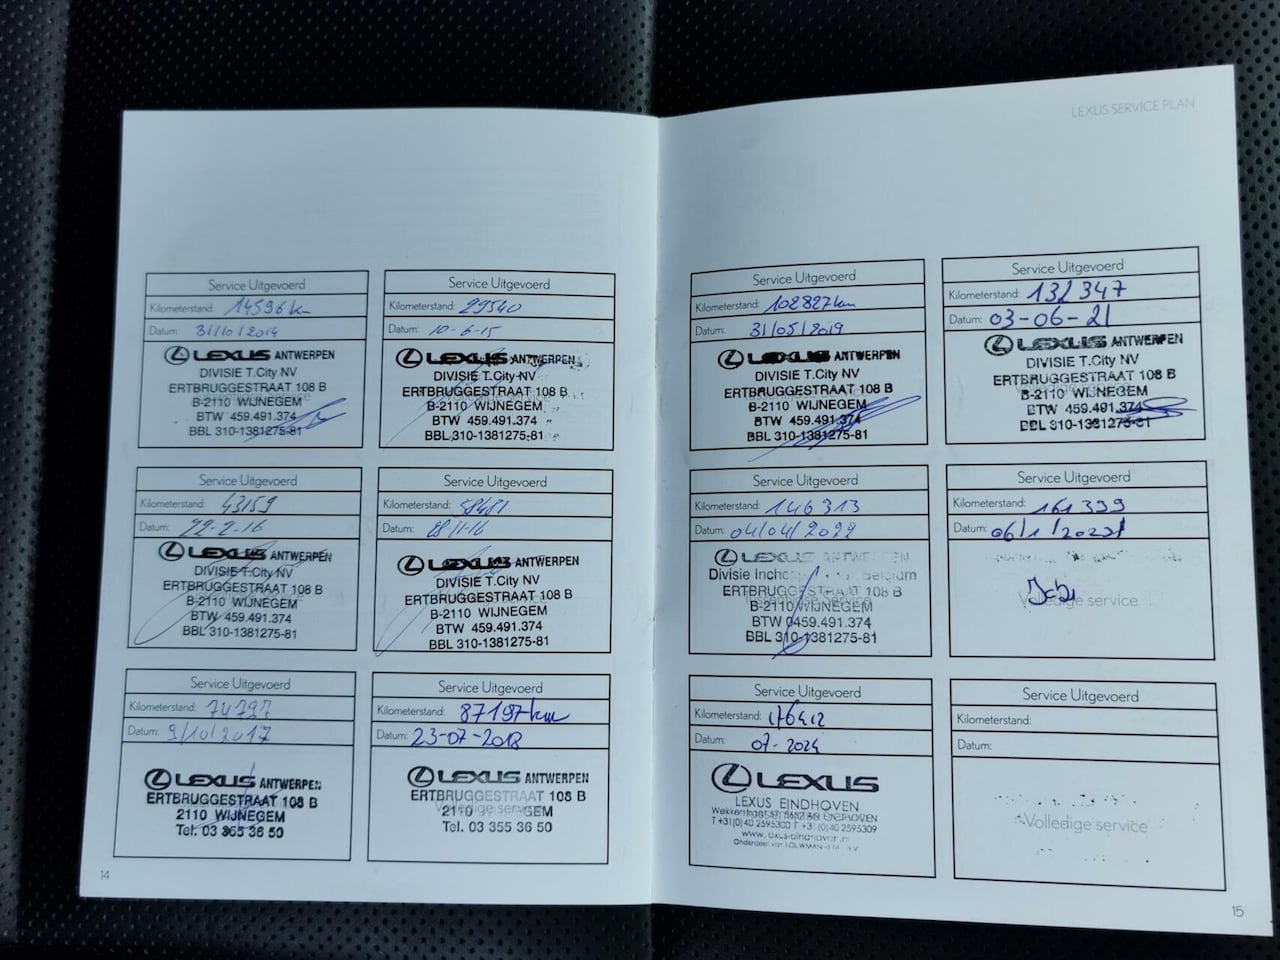 LEXUS SERVICE PLAN
Service Uitgevoerd
Kilometerstand: 14596 km
Datum: 31/10/2014
LEXUS ANTWERPEN
DIVISIE T.City NV
ERTBRUGGESTRAAT 108 B
B-2110 WIJNEGEM
BTW 459.491.374
BBL 310-1381275-81
Service Uitgevoerd
Kilometerstand: 29540
Datum: 10-6-15
LEXUS ANTWERPEN
DIVISIE T.City NV
ERTBRUGGESTRAAT 108 B
B-2110 WIJNEGEM
BTW 459.491.374
BBL 310-1381275-81
Service Uitgevoerd
Kilometerstand: 43159
Datum: 22-2-16
LEXUS ANTWERPEN
DIVISIE T.City NV
ERTBRUGGESTRAAT 108 B
B-2110 WIJNEGEM
BTW 459.491.374
BBL 310-1381275-81
Service Uitgevoerd
Kilometerstand: 58451
Datum: 28-11-16
LEXUS ANTWERPEN
DIVISIE T.City NV
ERTBRUGGESTRAAT 108 B
B-2110 WIJNEGEM
BTW 459.491.374
BBL 310-1381275-81
Service Uitgevoerd
Kilometerstand: 74797
Datum: 9/10/2017
LEXUS ANTWERPEN
ERTBRUGGESTRAAT 108 B
2110 WIJNEGEM
Tel. 03 355 36 50
Service Uitgevoerd
Kilometerstand: 87197 km
Datum: 23-07-2018
LEXUS ANTWERPEN
ERTBRUGGESTRAAT 108 B
Volledige service
2110 GEM
Tel. 03 355 36 50
14
Service Uitgevoerd
Kilometerstand: 102827 km
Datum: 31/05/2019
LEXUS ANTWERPEN
DIVISIE T.City NV
ERTBRUGGESTRAAT 108 B
B-2110 WIJNEGEM
BTW 459.491.374
BBL 310-1381275-81
Service Uitgevoerd
Kilometerstand: 132 347
Datum: 03-06-21
LEXUS ANTWERPEN
DIVISIE T.City NV
ERTBRUGGESTRAAT 108 B
B-2110 WIJNEGEM
BTW 459.491.374
BBL 310-1381275-81
Service Uitgevoerd
Kilometerstand: 146313
Datum: 04/04/2022
LEXUS ANTWERPEN
Divisie Belgium
ERTBRUGGESTRAAT 108 B
B-2110 WIJNEGEM
BTW 0459.491.374
BBL 310-1381275-81
Service Uitgevoerd
Kilometerstand: 161399
Datum:
Volledige service
Service Uitgevoerd
Kilometerstand: 176412
Datum: 07-2024
LEXUS
LEXUS EINDHOVEN
T +31(0)40 2595300 F +31(0)40 2595309
Service Uitgevoerd
Kilometerstand:
Datum:
Volledige service
15